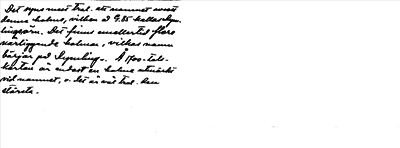 Det synes mest trol. att namnet avsett
denna holme, vilken å 9.85 kallas Dym-
lingsörn. Det finns emellertid flera
närliggande holmar, vilkas namn
börjar på Dymling-. Å 1700-tals-
kartan är endast en holme utmärkt
vid namnet, o. det är väl trol. den
största.